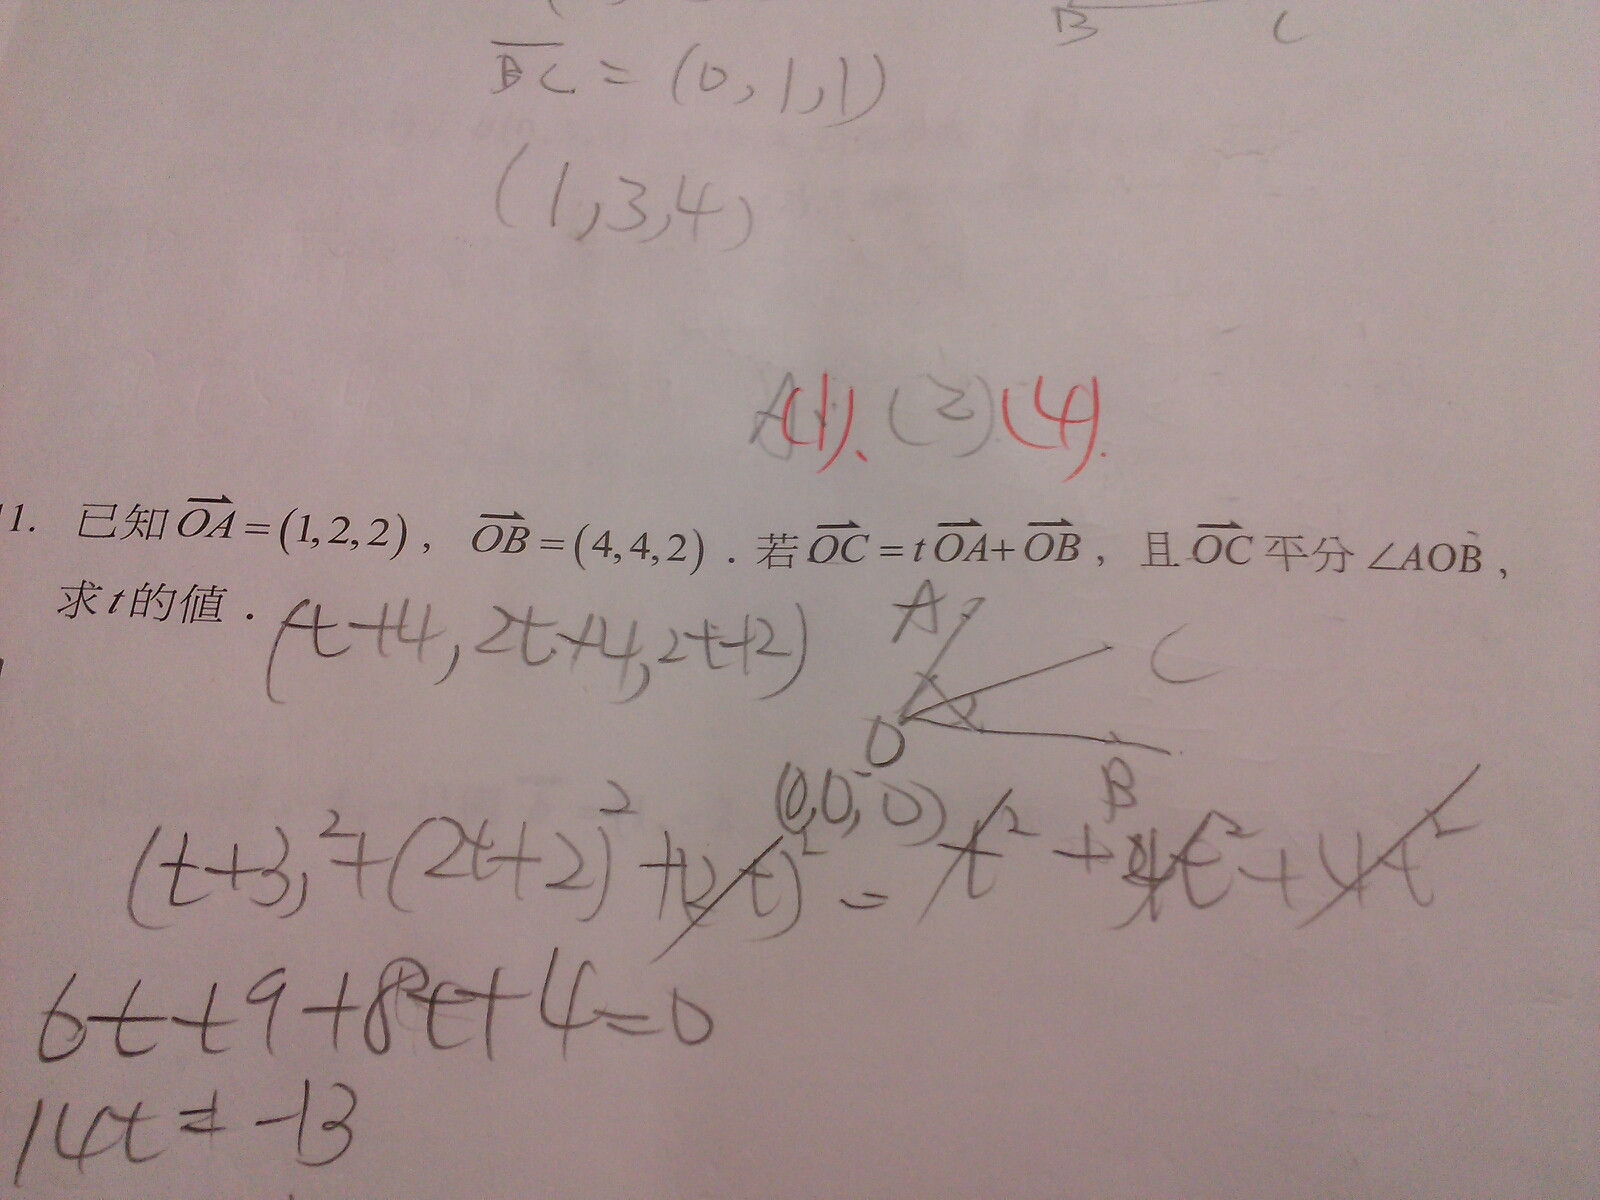 B C
BC = (0,1,1)
(1,3,4)
A(1)、(2)(4).
1. 已知 OA = (1,2,2), OB = (4,4,2). 若 OC = t OA + OB, 且 OC 平分 ∠AOB,
求 t 的值.
(t+4, 2t+4, 2t+2)
A
C
O
B
(0,0,0)
(t+3)²+(2t+2)²+(2t)² = t²+4t²+4t²
6t+9+8t+4=0
14t = -13